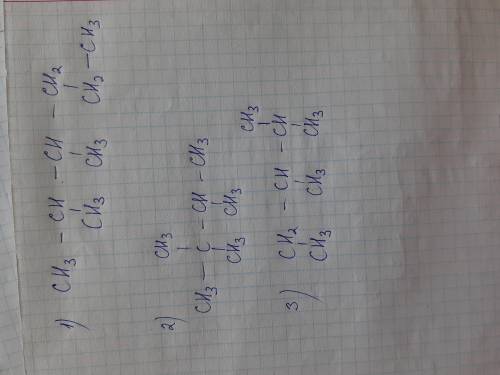 1) CH3 – CH – CH – CH2
CH3 CH3 CH2 – CH3
CH3
2) CH3 – C – CH – CH3
CH3 CH3
CH3
3) CH2 – CH – CH
CH3 CH3 CH3